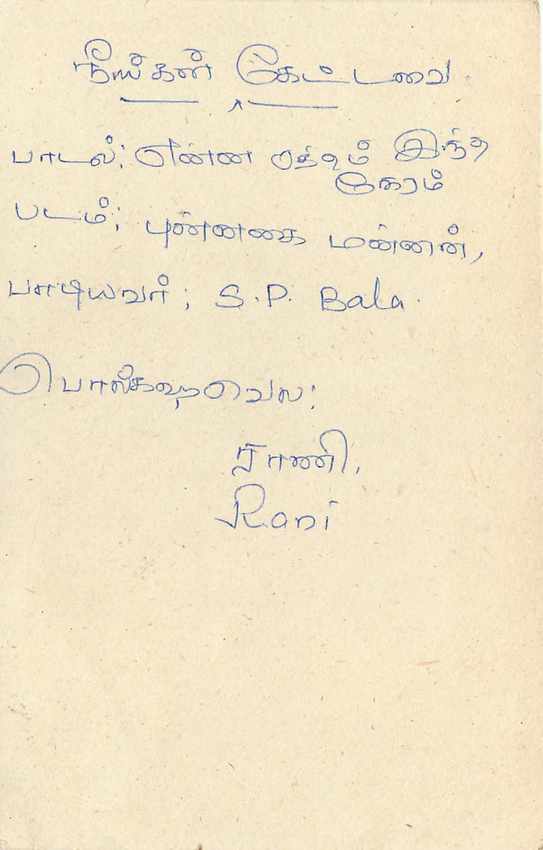 நீங்கள் கேட்டவை
பாடல்: என்ன சத்தம் இந்த
நேரம்
படம்; புன்னகை மன்னன்,
பாடியவர்; S.P. Bala.
பொல்கஹவெல:
ராணி.
Rani